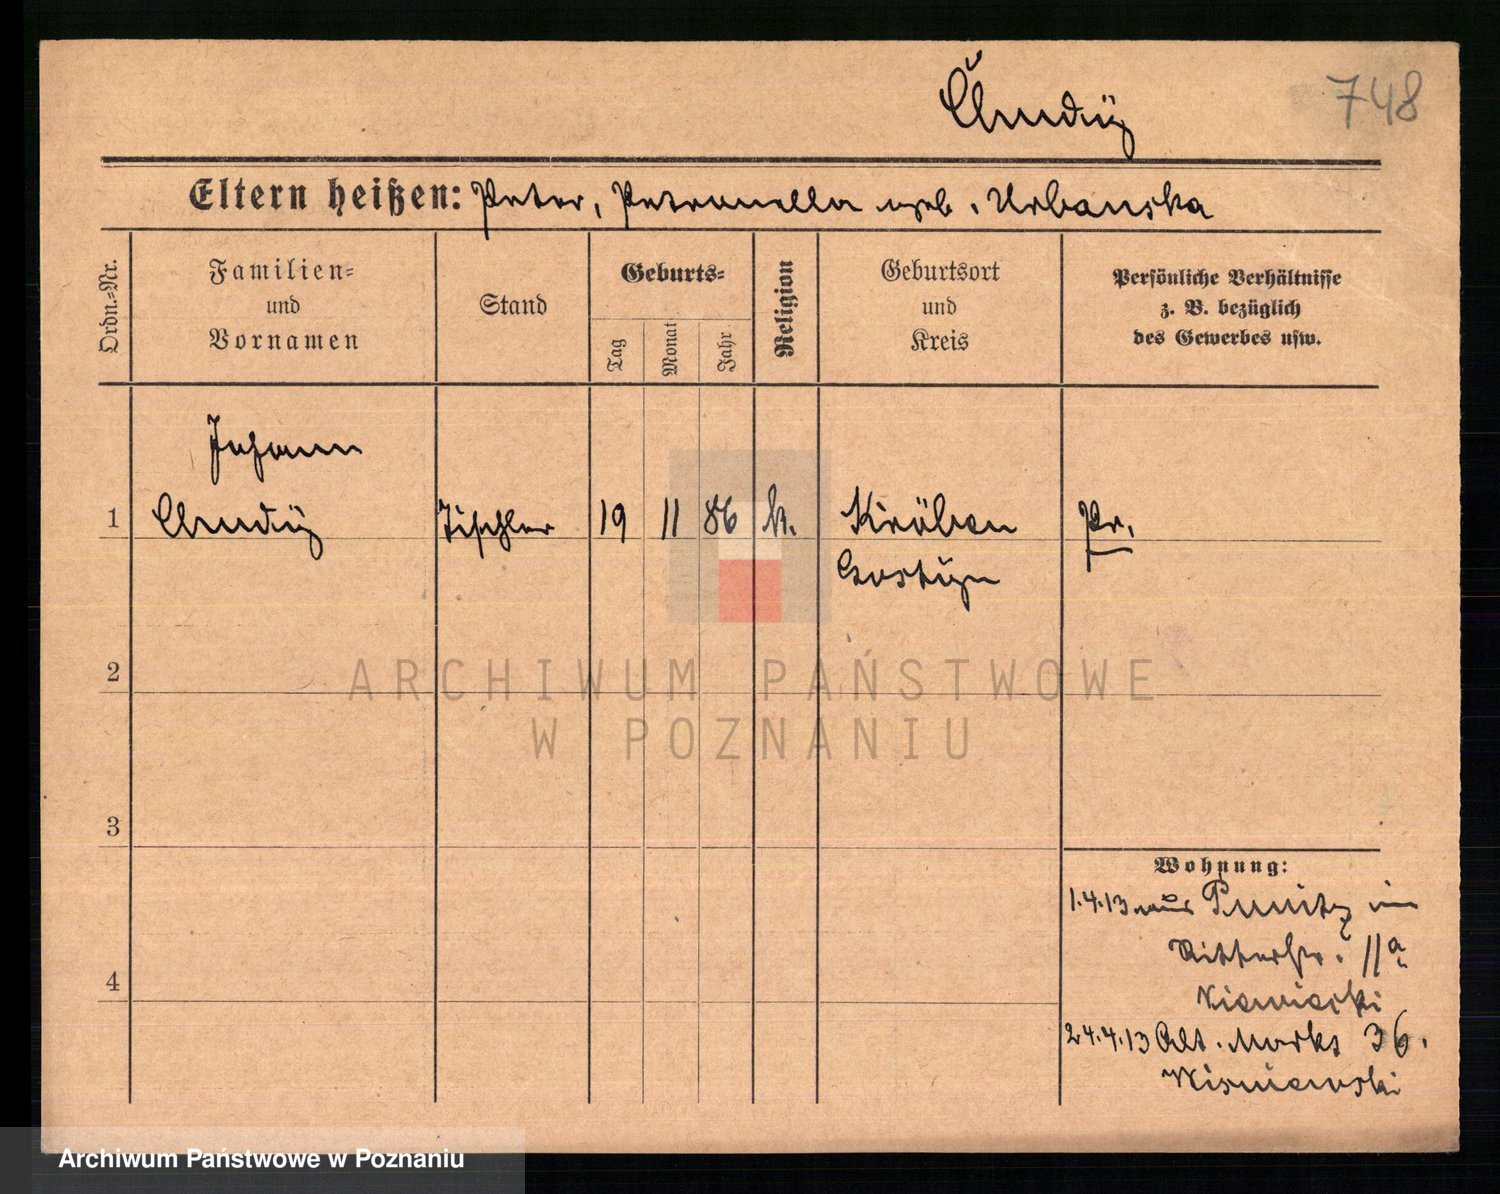 Chudy
748
Eltern heißen: Peter, Petronella geb. Urbanska
Ordn.-Nr.
Familien-
und
Vornamen
Stand
Geburts-
Tag
Monat
Jahr
Religion
Geburtsort
und
Kreis
Persönliche Verhältnisse
z. B. bezüglich
des Gewerbes usw.
Johann
1 Tischler 19 11 86 k. Kröben Pr.
Gostyn
2
ARCHIWUM PAŃSTWOWE
W POZNANIU
3
Wohnung:
1.4.13 aus Punitz im
Ritterstr. 11a
4
24.4.13 Alt. Markt 36.
Wisniewski
Archiwum Państwowe w Poznaniu